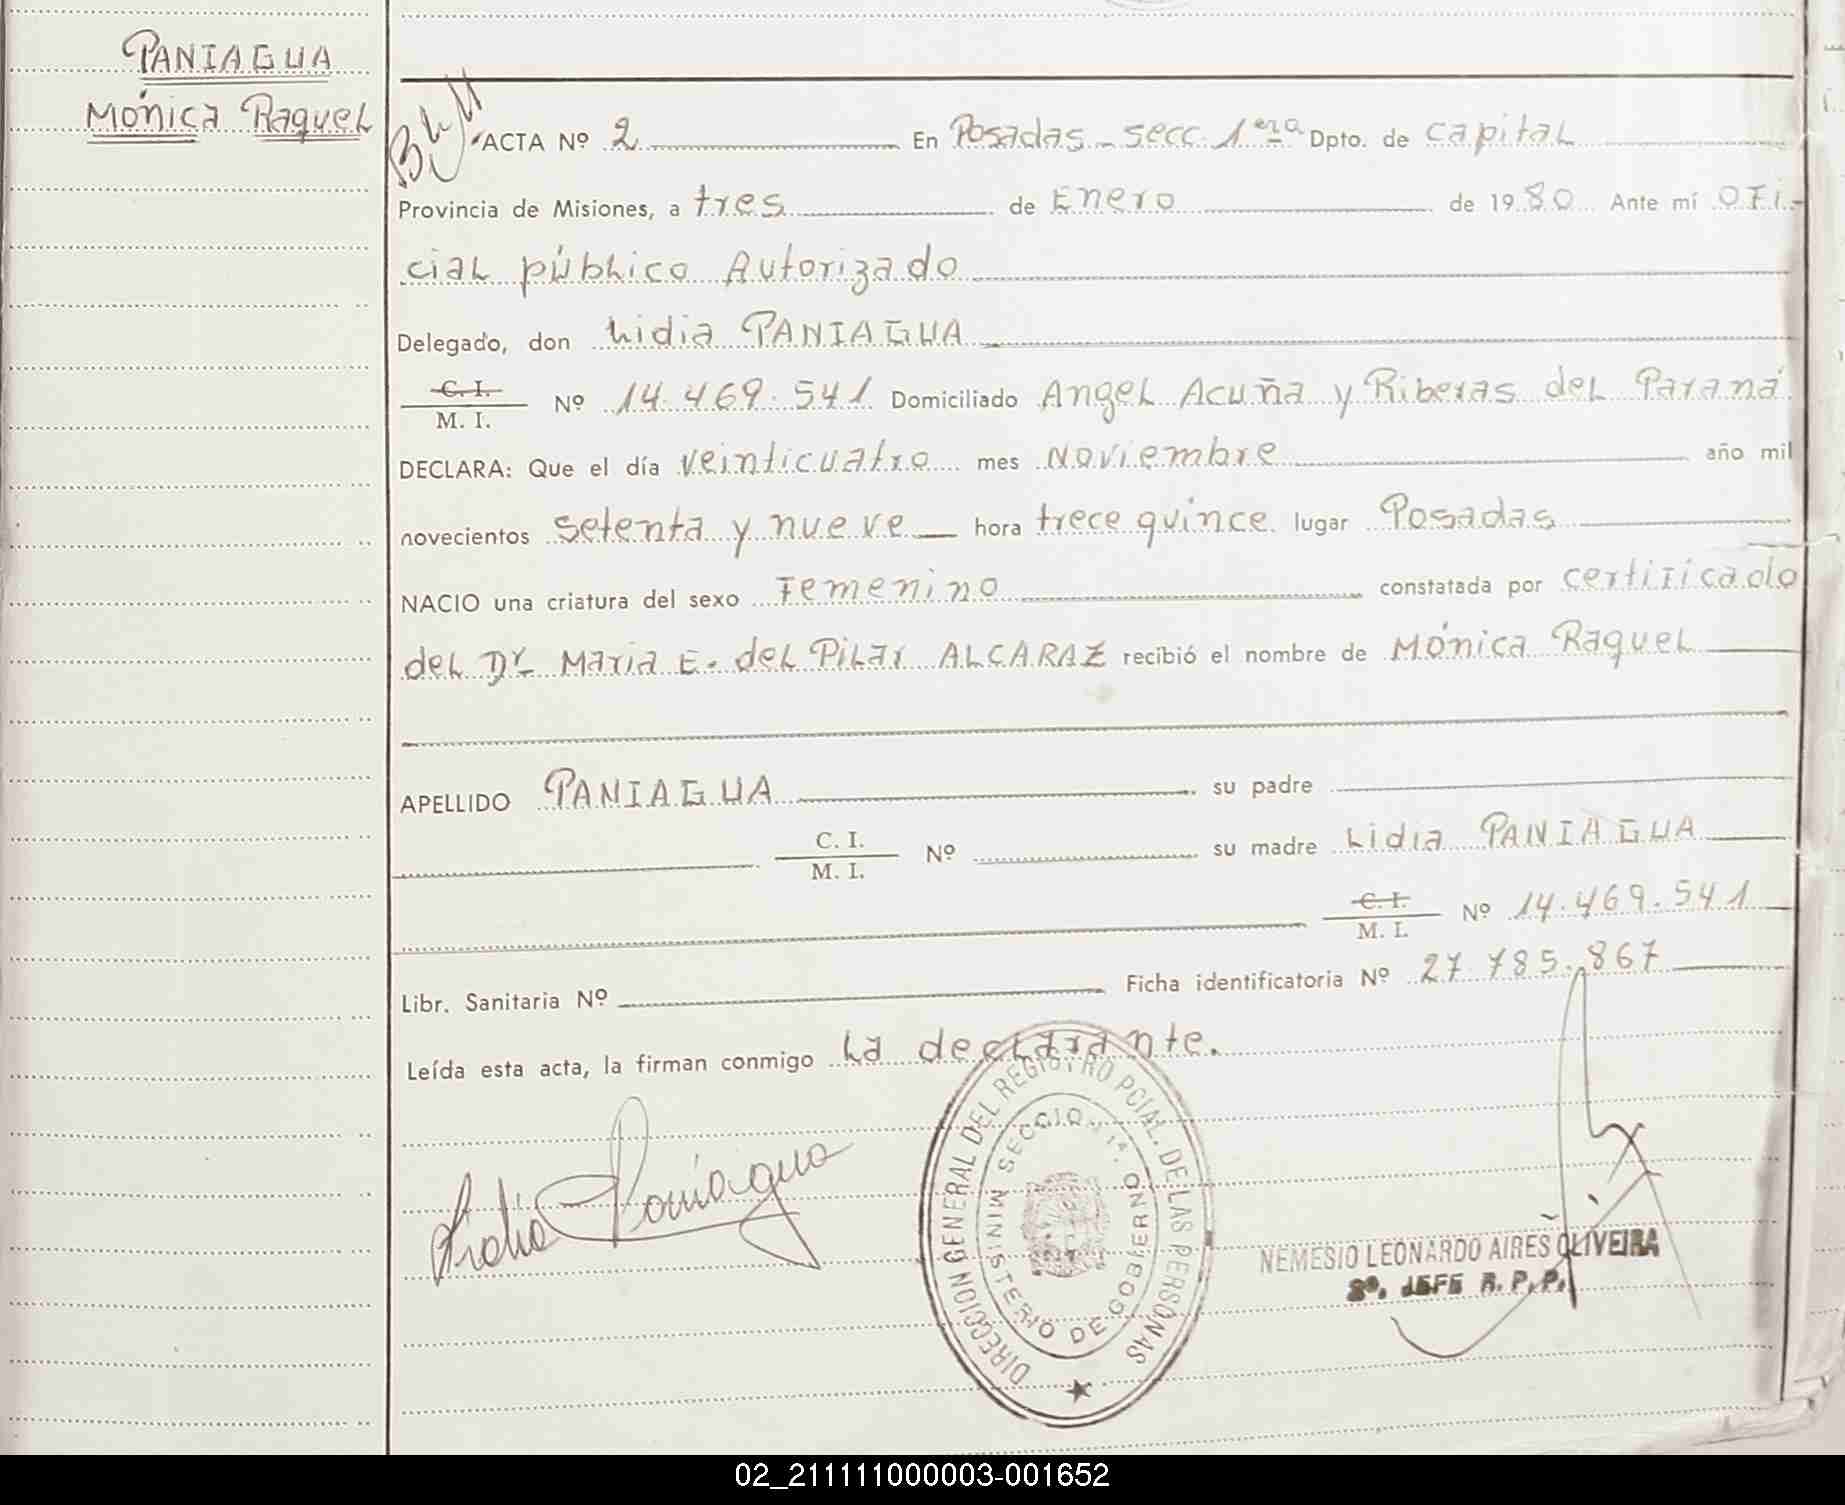 PANIAGUA
Mónica Raquel
ACTA Nº 2 En Posadas - secc. 1era Dpto. de capital
Provincia de Misiones, a tres de Enero de 1980 Ante mí Ofi-
cial público Autorizado
Delegado, don Lidia PANIAGUA
C. I.
M. I. Nº 14.469.541 Domiciliado Angel Acuña y Riberas del Paraná
DECLARA: Que el día veinticuatro mes Noviembre año mil
novecientos setenta y nueve hora trece quince lugar Posadas
NACIO una criatura del sexo Femenino constatada por certificado
del Dr. Maria E. del Pilar ALCARAZ recibió el nombre de Mónica Raquel
APELLIDO PANIAGUA su padre
C. I.
M. I. Nº su madre Lidia PANIAGUA
C. I.
M. I. Nº 14.469.541
Libr. Sanitaria Nº Ficha identificatoria Nº 27.785.867
Leída esta acta, la firman conmigo La declarante.
Lidia Paniagua
DIRECCION GENERAL DEL REGISTRO PCIAL. DE LAS PERSONAS
SECCION 1ª.
MINISTERIO DE GOBIERNO
NEMESIO LEONARDO AIRES OLIVEIRA
2º. JEFE R. P. P.
02_211111000003-001652